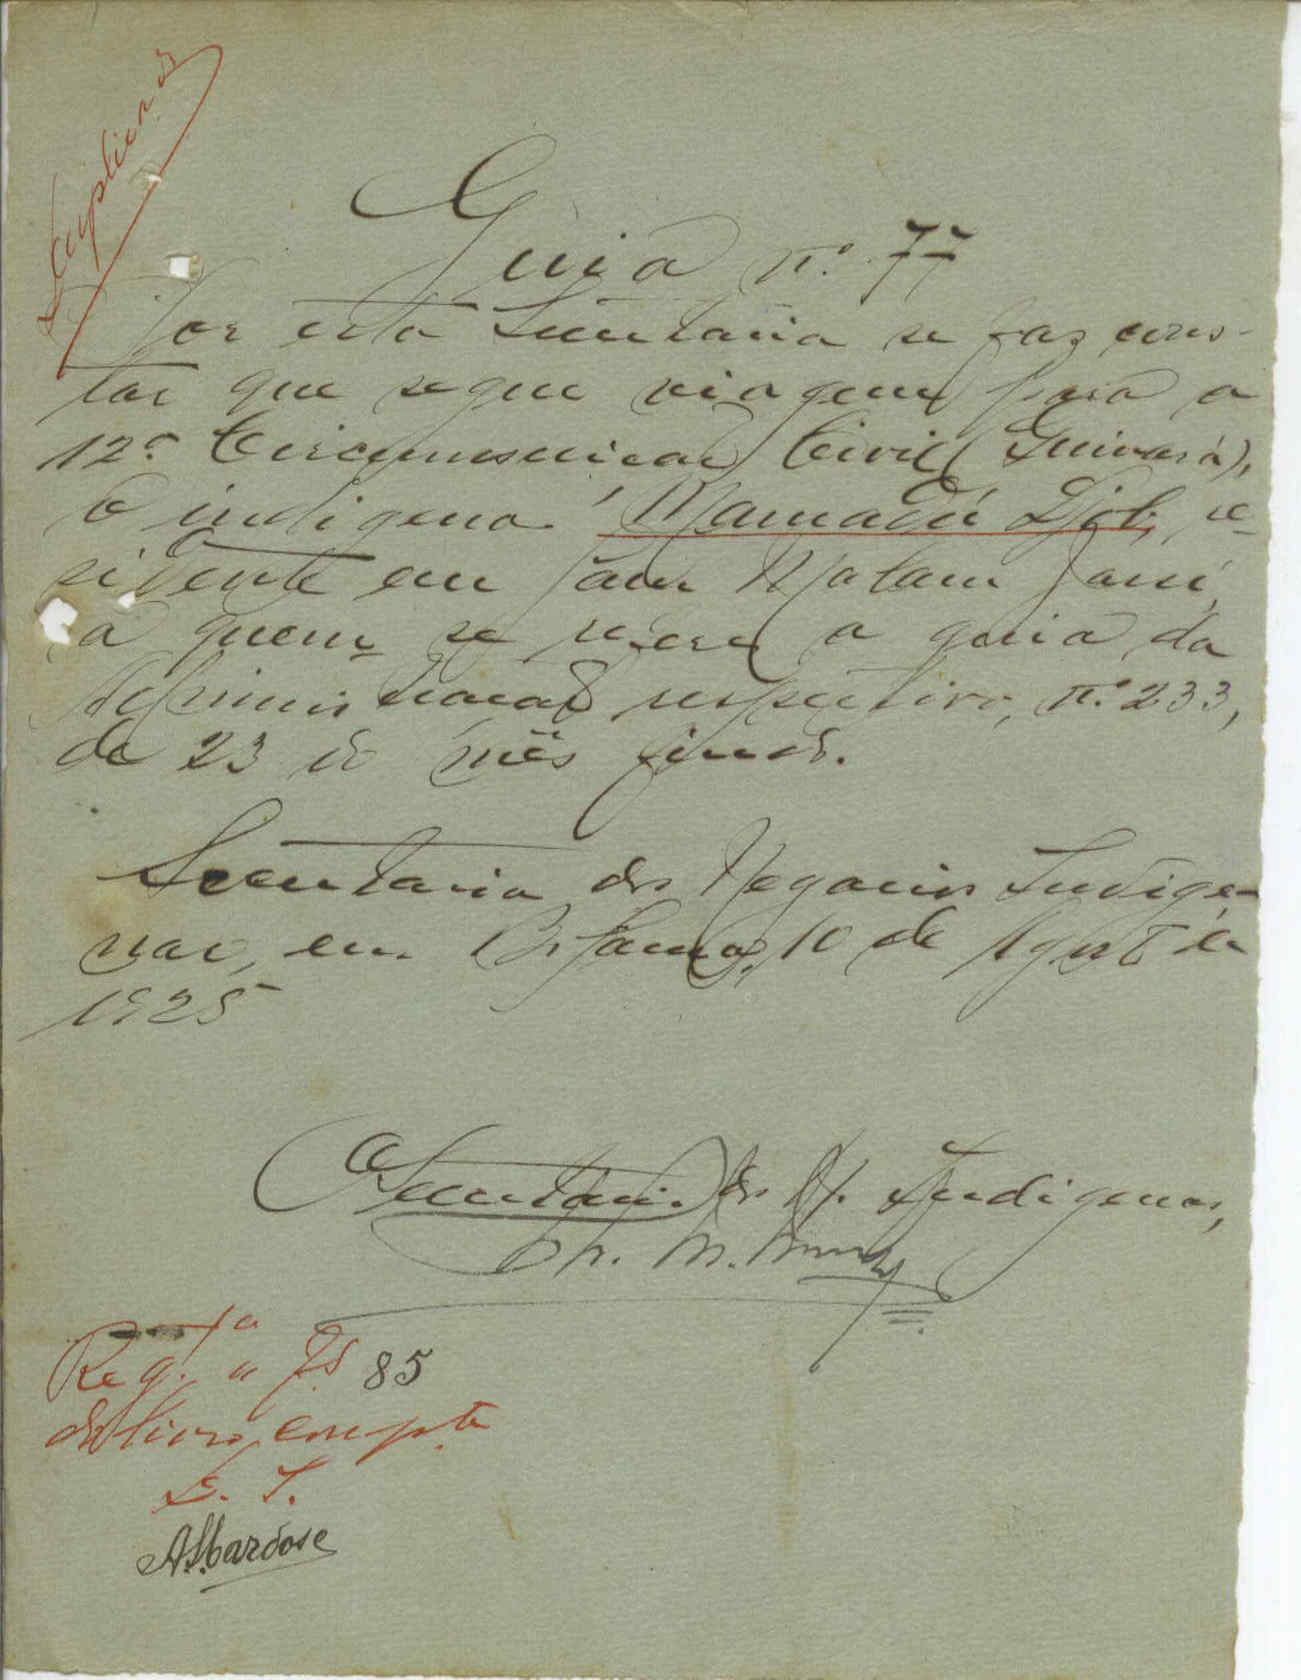 Guia n.º 77
Por esta Secretaria se faz cons-
tar que segue viagem para a
12.ª Circunscricão Civil
o indigena Mamadú Djob, re-
sidente em
a quem se refere a guia da
Administracão respectiva, n.º 233,
de 23 do mês findo.
Secretaria dos Negocios Indige-
nas, em Bolama, 10 de Agosto de
1925
O Secretario dos N. Indigenas,
Reg.ta a fs 85
do livro compte
S. I.